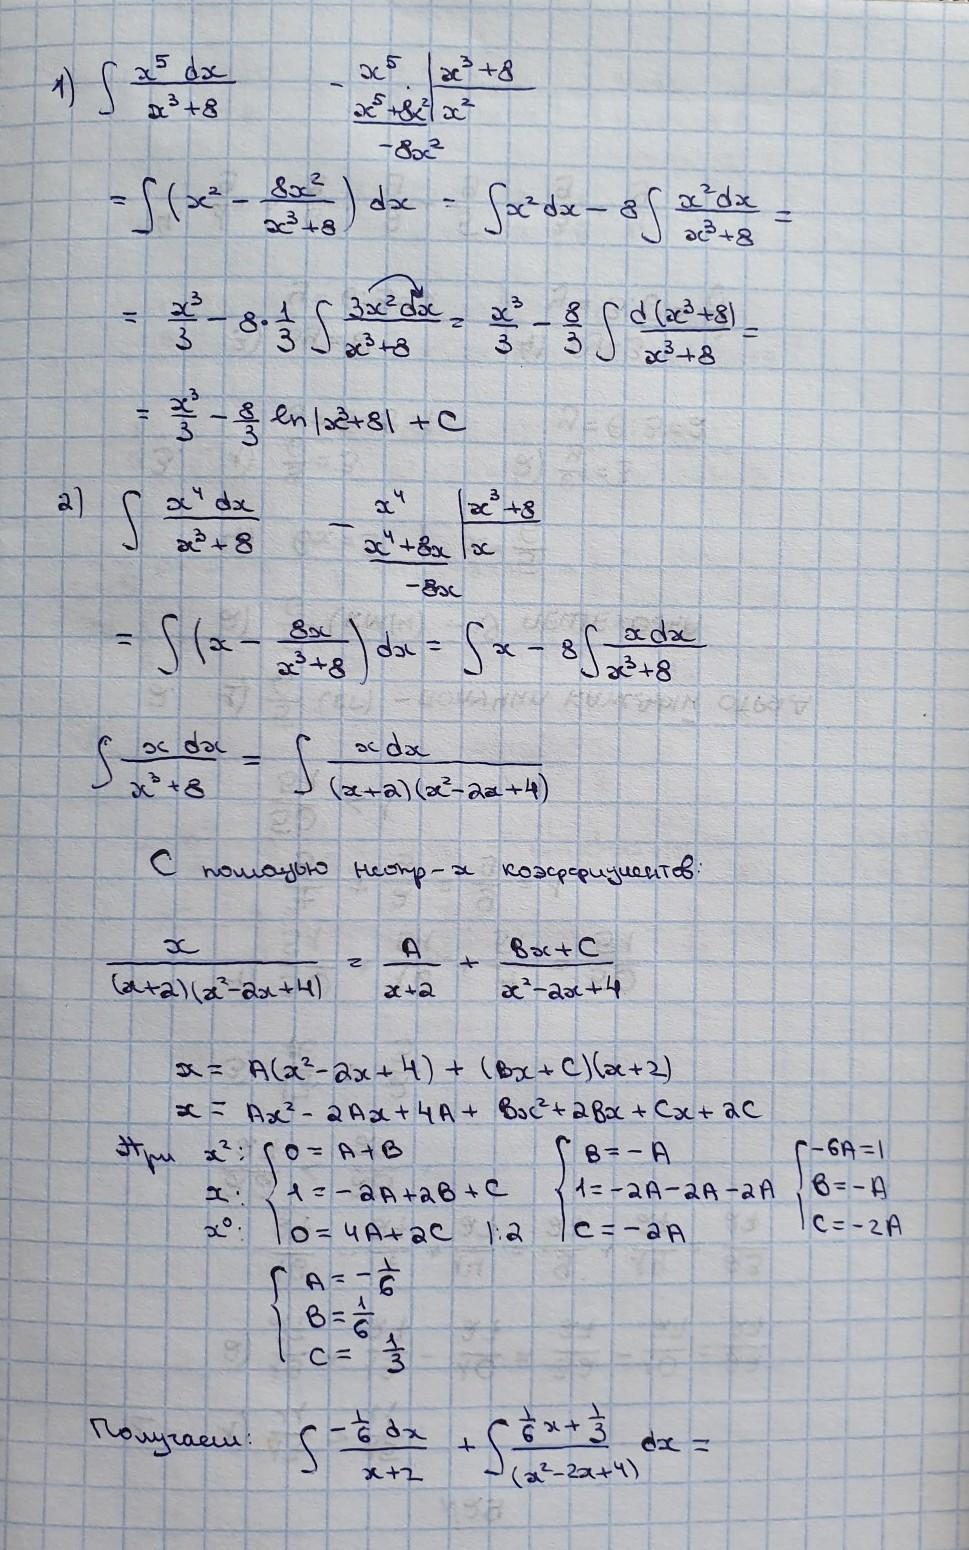 1) ∫ x⁵ dx / (x³+8)   − x⁵ | x³+8
x⁵+8x² | x²
−8x²
= ∫ (x² − 8x²/(x³+8)) dx = ∫ x² dx − 8 ∫ x² dx/(x³+8) =
= x³/3 − 8·1/3 ∫ 3x² dx/(x³+8) = x³/3 − 8/3 ∫ d(x³+8)/(x³+8) =
= x³/3 − 8/3 ln|x³+8| + C
2) ∫ x⁴ dx / (x³+8)   − x⁴ | x³+8
x⁴+8x | x
−8x
= ∫ (x − 8x/(x³+8)) dx = ∫ x − 8 ∫ x dx/(x³+8)
∫ x dx/(x³+8) = ∫ x dx/((x+2)(x²−2x+4))
С помощью неопр-х коэффициентов:
x/((x+2)(x²−2x+4)) = A/(x+2) + (Bx+C)/(x²−2x+4)
x = A(x²−2x+4) + (Bx+C)(x+2)
x = Ax² − 2Ax + 4A + Bx² + 2Bx + Cx + 2C
При x²: { 0 = A+B   { B = −A   { −6A = 1
x: 1 = −2A+2B+C   1 = −2A−2A−2A   B = −A
x⁰: 0 = 4A+2C |:2   C = −2A   C = −2A
{ A = −1/6
B = 1/6
C = 1/3
Получаем: ∫ −1/6 dx/(x+2) + ∫ (1/6 x + 1/3)/(x²−2x+4) dx =